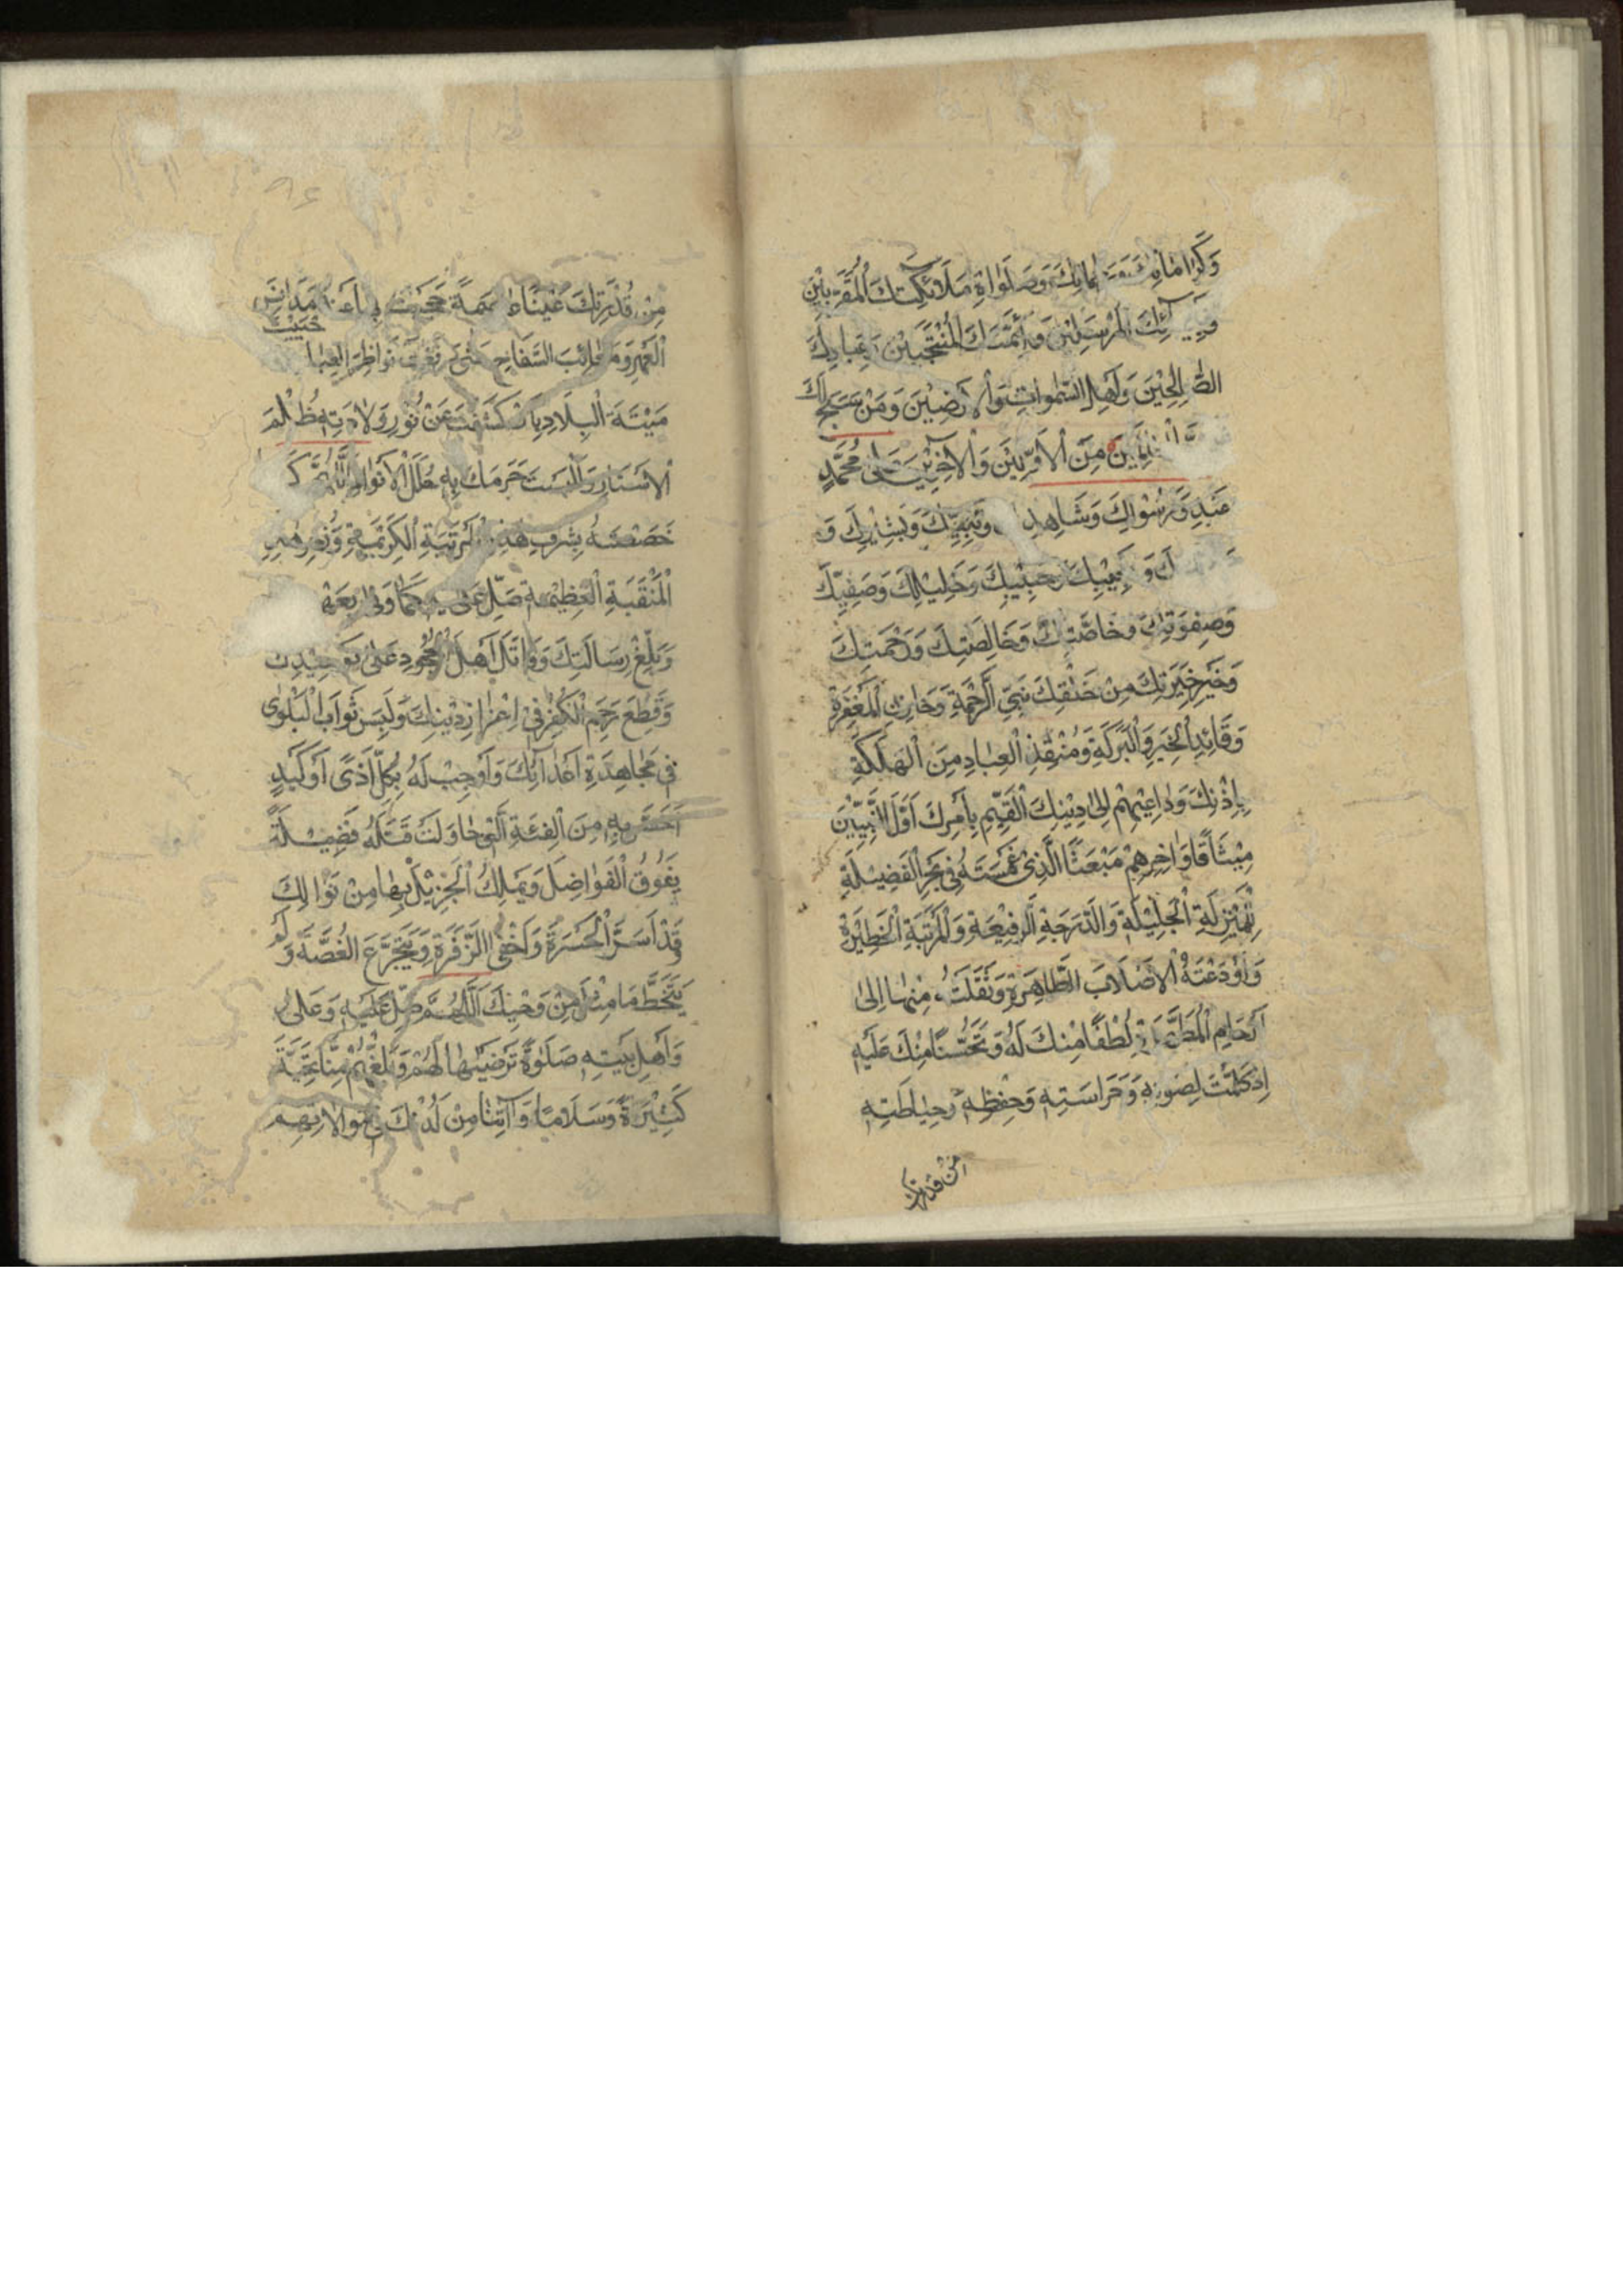 وَكَرَامَاتِكَ وَصَلَوَاةِ مَلَائِكَتِكَ الْمُقَرَّبِيْنَ
الْمُرْسَلِيْنَ وَاَئِمَّتِكَ الْمُنْتَجَبِيْنَ وَعِبَادِكَ
الصَّالِحِيْنَ وَاَهْلِ السَّمٰوَاتِ وَالْاَرَضِيْنَ وَمَنْ سَبَّحَ لَكَ
مِنَ الْاَوَّلِيْنَ وَالْاٰخِرِيْنَ عَلٰى مُحَمَّدٍ
عَبْدِكَ وَرَسُوْلِكَ وَشَاهِدِكَ وَنَبِيِّكَ وَبَشِيْرِكَ وَ
وَنَجِيْبِكَ وَحَبِيْبِكَ وَخَلِيْلِكَ وَصَفِيِّكَ
وَصِفْوَتِكَ وَخَاصَّتِكَ وَخَالِصَتِكَ وَرَحْمَتِكَ
وَخَيْرِ خِيَرَتِكَ مِنْ خَلْقِكَ نَبِيِّ الرَّحْمَةِ وَخَازِنِ الْمَغْفِرَةِ
وَقَائِدِ الْخَيْرِ وَالْبَرَكَةِ وَمُنْقِذِ الْعِبَادِ مِنَ الْهَلَكَةِ
بِاِذْنِكَ وَدَاعِيْهِمْ اِلٰى دِيْنِكَ الْقَيِّمِ بِاَمْرِكَ اَوَّلَ النَّبِيِّيْنَ
مِيْثَاقًا وَاٰخِرِهِمْ مَبْعَثًا الَّذِىْ غَمَسْتَهُ فِىْ بَحْرِ الْفَضِيْلَةِ
لِلْمَنْزِلَةِ الْجَلِيْلَةِ وَالدَّرَجَةِ الرَّفِيْعَةِ وَالْمَرْتَبَةِ الْخَطِيْرَةِ
وَاَوْدَعْتَهُ الْاَصْلَابَ الطَّاهِرَةَ وَنَقَلْتَهُ مِنْهَا اِلٰى
اَرْحَامِ الْمُطَهَّرَةِ لُطْفًا مِنْكَ لَهُ وَتَحَنُّنًا مِنْكَ عَلَيْهِ
اِذْ وَكَّلْتَ لِصَوْنِهِ وَحَرَاسَتِهِ وَحِفْظِهِ وَحِيَاطَتِهِ
مِنْ قُدْرَتِكَ
مِنْ قُدْرَتِكَ عَيْنًا عَاصِمَةً حَجَبْتَ بِهَا عَنْهُ مَدَانِسَ
الْعَهْرِ وَمَعَائِبَ السِّفَاحِ حَتّٰى رَفَعْتَ نَوَاظِرَ الْعِبَادِ
حْيَيْتَ
مَيْتَةَ الْبِلَادِ بِاَنْ كَشَفْتَ عَنْ نُوْرِ وِلَادَتِهِ ظُلَمَ
الْاَسْتَارِ وَاَلْبَسْتَ حَرَمَكَ بِهِ حُلَلَ الْاَنْوَارِ اَللّٰهُمَّ كَمَا
خَصَصْتَهُ بِشَرَفِ هٰذِهِ الْمَرْتَبَةِ الْكَرِيْمَةِ وَذُخْرِ هٰذِهِ
الْمَنْقَبَةِ الْعَظِيْمَةِ صَلِّ عَلَيْهِ كَمَا وَفٰى بِعَهْدِكَ
وَبَلَّغَ رِسَالَتِكَ وَقَاتَلَ اَهْلَ الْجُحُوْدِ عَلٰى تَوْحِيْدِكَ
وَقَطَعَ رَحِمَ الْكُفْرِ فِىْ اِعْزَازِ دِيْنِكَ وَلَبِسَ ثَوْبَ الْبَلْوٰى
فِىْ مُجَاهِدَةِ اَعْدَائِكَ وَاَوْجِبْ لَهُ بِكُلِّ اَذًى اَوْ كَيْدٍ
اَحَسَّ بِهِ مِنَ الْفِئَةِ الَّتِىْ حَاوَلَتْ قَتْلَهُ فَضِيْلَةً
يَفُوْقُ الْفَوَاضِلَ وَيَمْلِكُ الْجَزِيْلَ بِهَا مِنْ نَوَالِكَ
قَدْ اَسَرَّ الْحَسْرَةَ وَاَخْفَى الزَّفْرَةَ وَيَتَجَرَّعَ الْغُصَّةَ وَلَمْ
يَتَخَطَّ مَا مَثَّلَ مِنْ وَحْيِكَ اَللّٰهُمَّ صَلِّ عَلَيْهِ وَعَلٰى
وَاَهْلِ بَيْتِهِ صَلٰوةً تَرْضَيٰهَا لَهُمْ وَبَلِّغْهُمْ مِنَّا تَحِيَّةً
كَثِيْرَةً وَسَلَامًا وَاٰتِنَا مِنْ لَدُنْكَ فِىْ مُوَالَاتِهِمْ